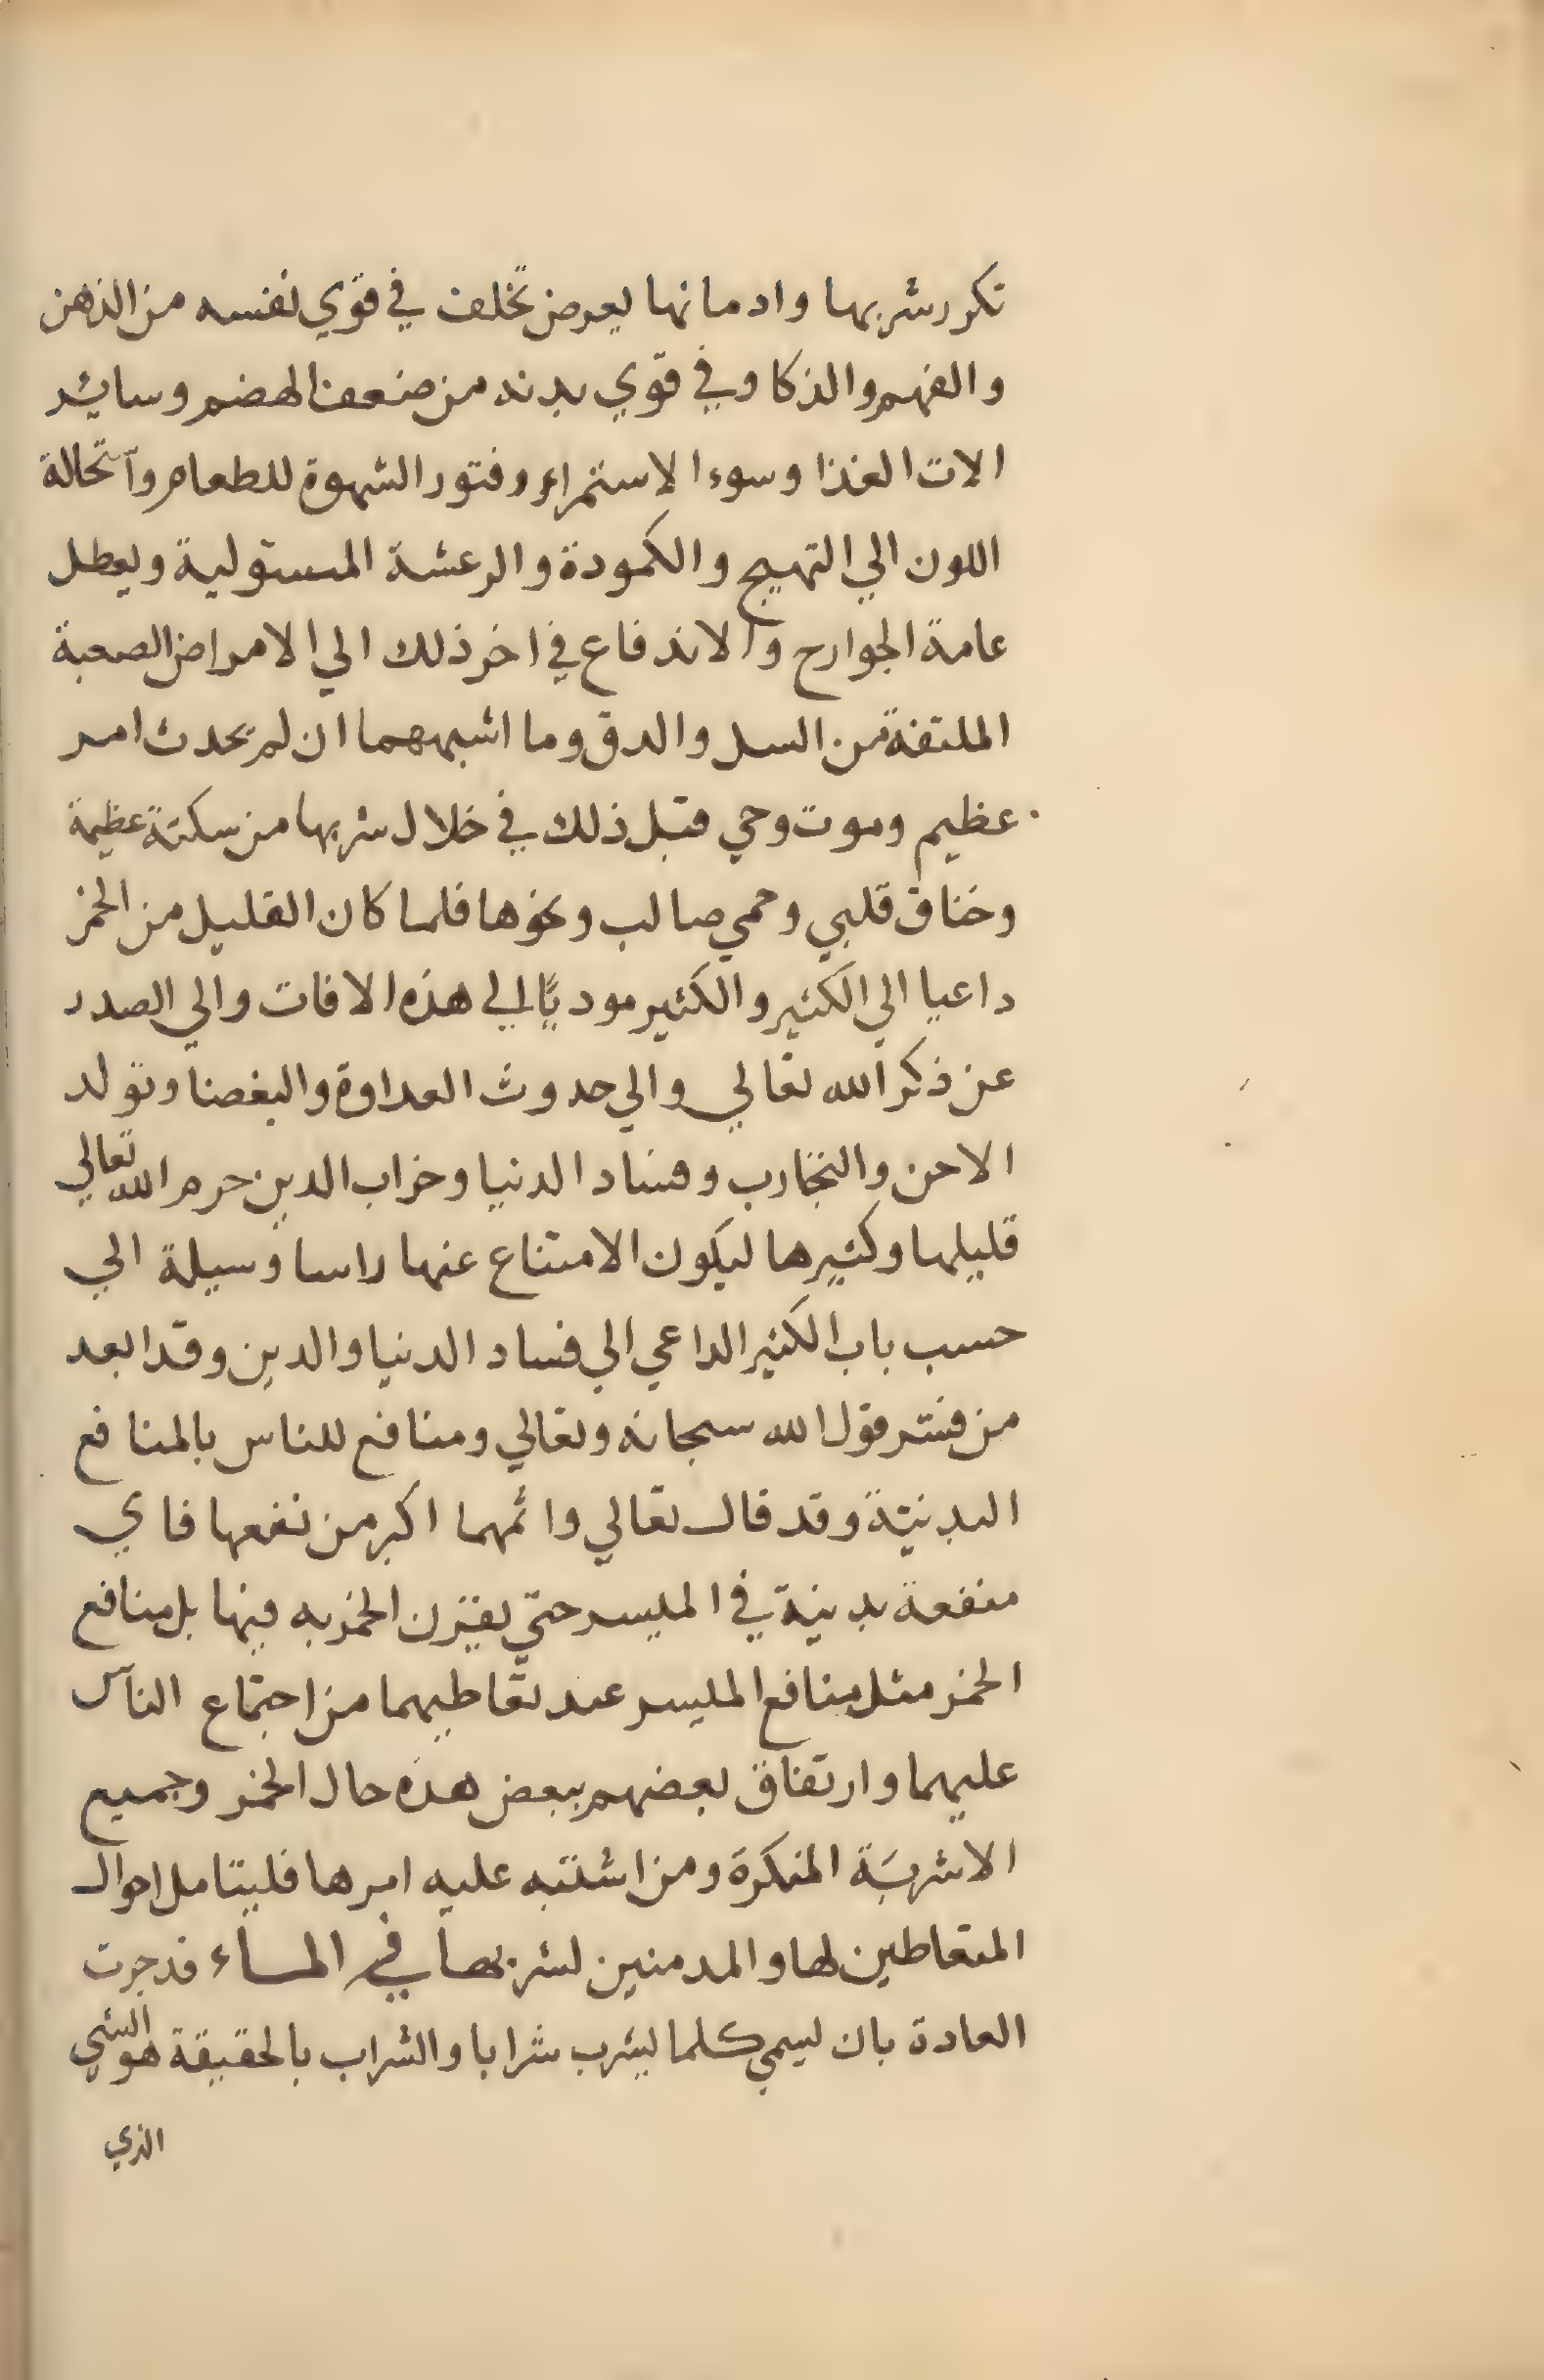 تكرر شربها وادمانها يعرض تخلف في قوي نفسه من الذهن
والفهم والذكا وفي قوي بدنه من ضعف الهضم وسائر
الات الغذا وسوء الاستمراء وفتور الشهوة للطعام واستحالة
اللون الي التهيج والكمودة والرعشة المستولية ويعطل
عامة الجوارح والاندفاع في اخر ذلك الي الامراض الصعبة
الملتفة من السل والدق وما اشبههما ان لم يحدث امر
عظيم وموت وحي قبل ذلك في خلال شربها من سكتة عظيمة
وخناق قلبي وحمي صالب ونحوها فلما كان القليل من الخمر
داعيا الي الكثير والكثير موديًا الي هذه الافات والي الصدد
عن ذكر الله تعالي والي حدوث العداوة والبغضا وتولد
الاحن والتخارب وفساد الدنيا وخراب الدين حرم الله تعالي
قليلها وكثيرها ليكون الامتناع عنها راسا وسيلة الي
حسب باب الكثير الداعي الي فساد الدنيا والدين وقد ابعد
من فسر قول الله سبحانه وتعالي ومنافع للناس بالمنافع
البدنيّة وقد قال تعالي واثمهما اكبر من نفعها فاي
منفعة بدنية في الميسر حتي يقترن الخمر به فيها بل منافع
الخمر مثل منافع الميسر عند تعاطيهما من اجتماع الناس
عليهما وارتفاق بعضهم ببعض هذه حال الخمر وجميع
الاشربة المنكرة ومن اشتبه عليه امرها فليتامل احوال
المتعاطين لها والمدمنين لشربها في الماء قد جرت
العادة بان يسمي كلما يشرب شرابا والشراب بالحقيقة هو الشي
الذي